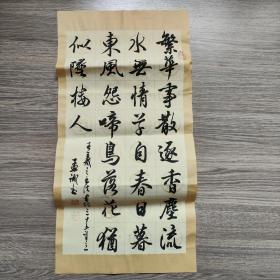 繁華事散逐香塵流
水無情草自春日暮
東風怨啼鳥落花猶
似墜樓人
孟誠書